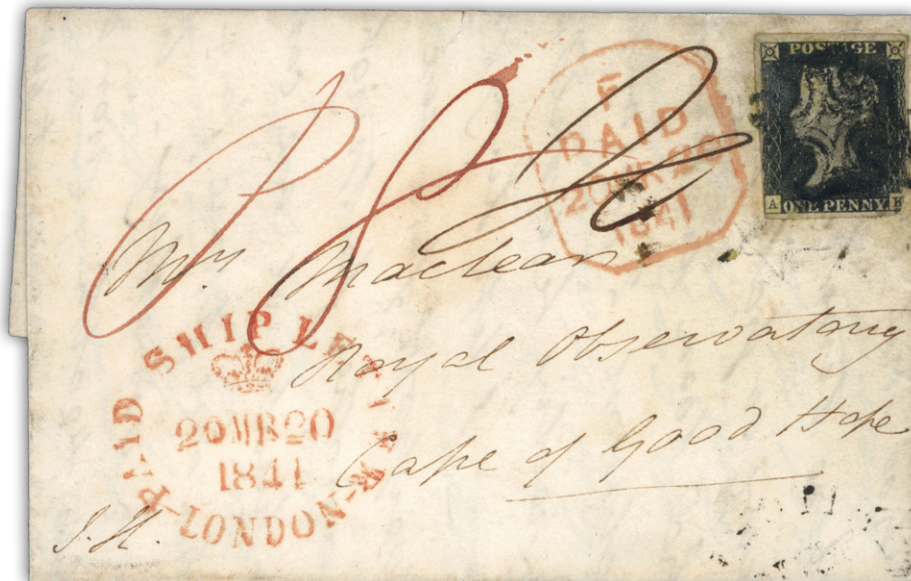 POSTAGE
A ONE PENNY
F
PAID
20 MR 20
1841
P 8
Mrs Maclean
Royal Observatory
Cape of Good Hope
PAID SHIP LET
20 MR 20
1841
LONDON
J.H.